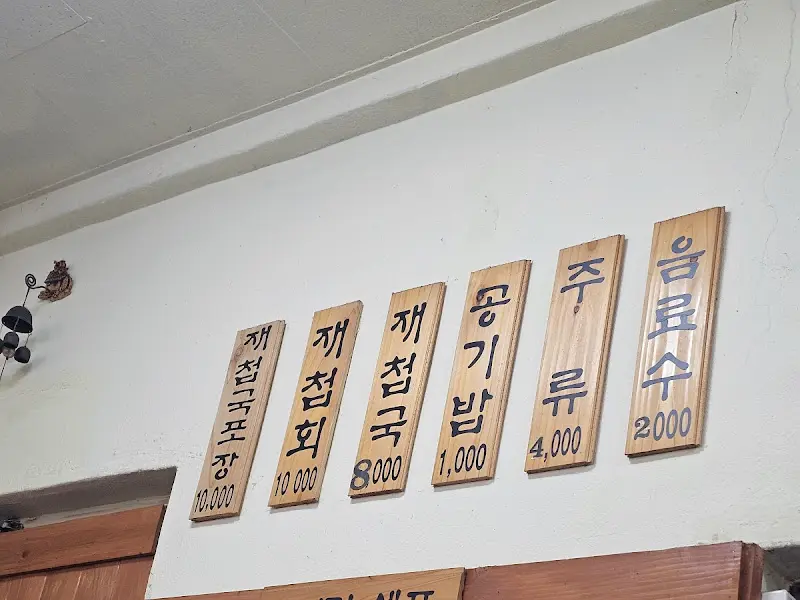 재첩국포장
10,000
재첩회
10 000
재첩국
8000
공기밥
1,000
주류
4,000
음료수
2000